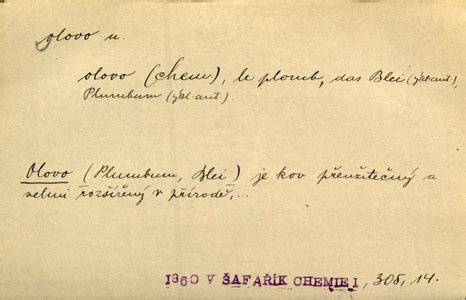 olovo n.
olovo (chem), le plomb, das Blei (jat. ant.),
Plumbum (jat. ant.)
Olovo (Plumbum, Blei) je kov přeužitečný a
velmi rozšířený v přírodě,...
1860 V ŠAFAŘÍK CHEMIE I, 305, 14.